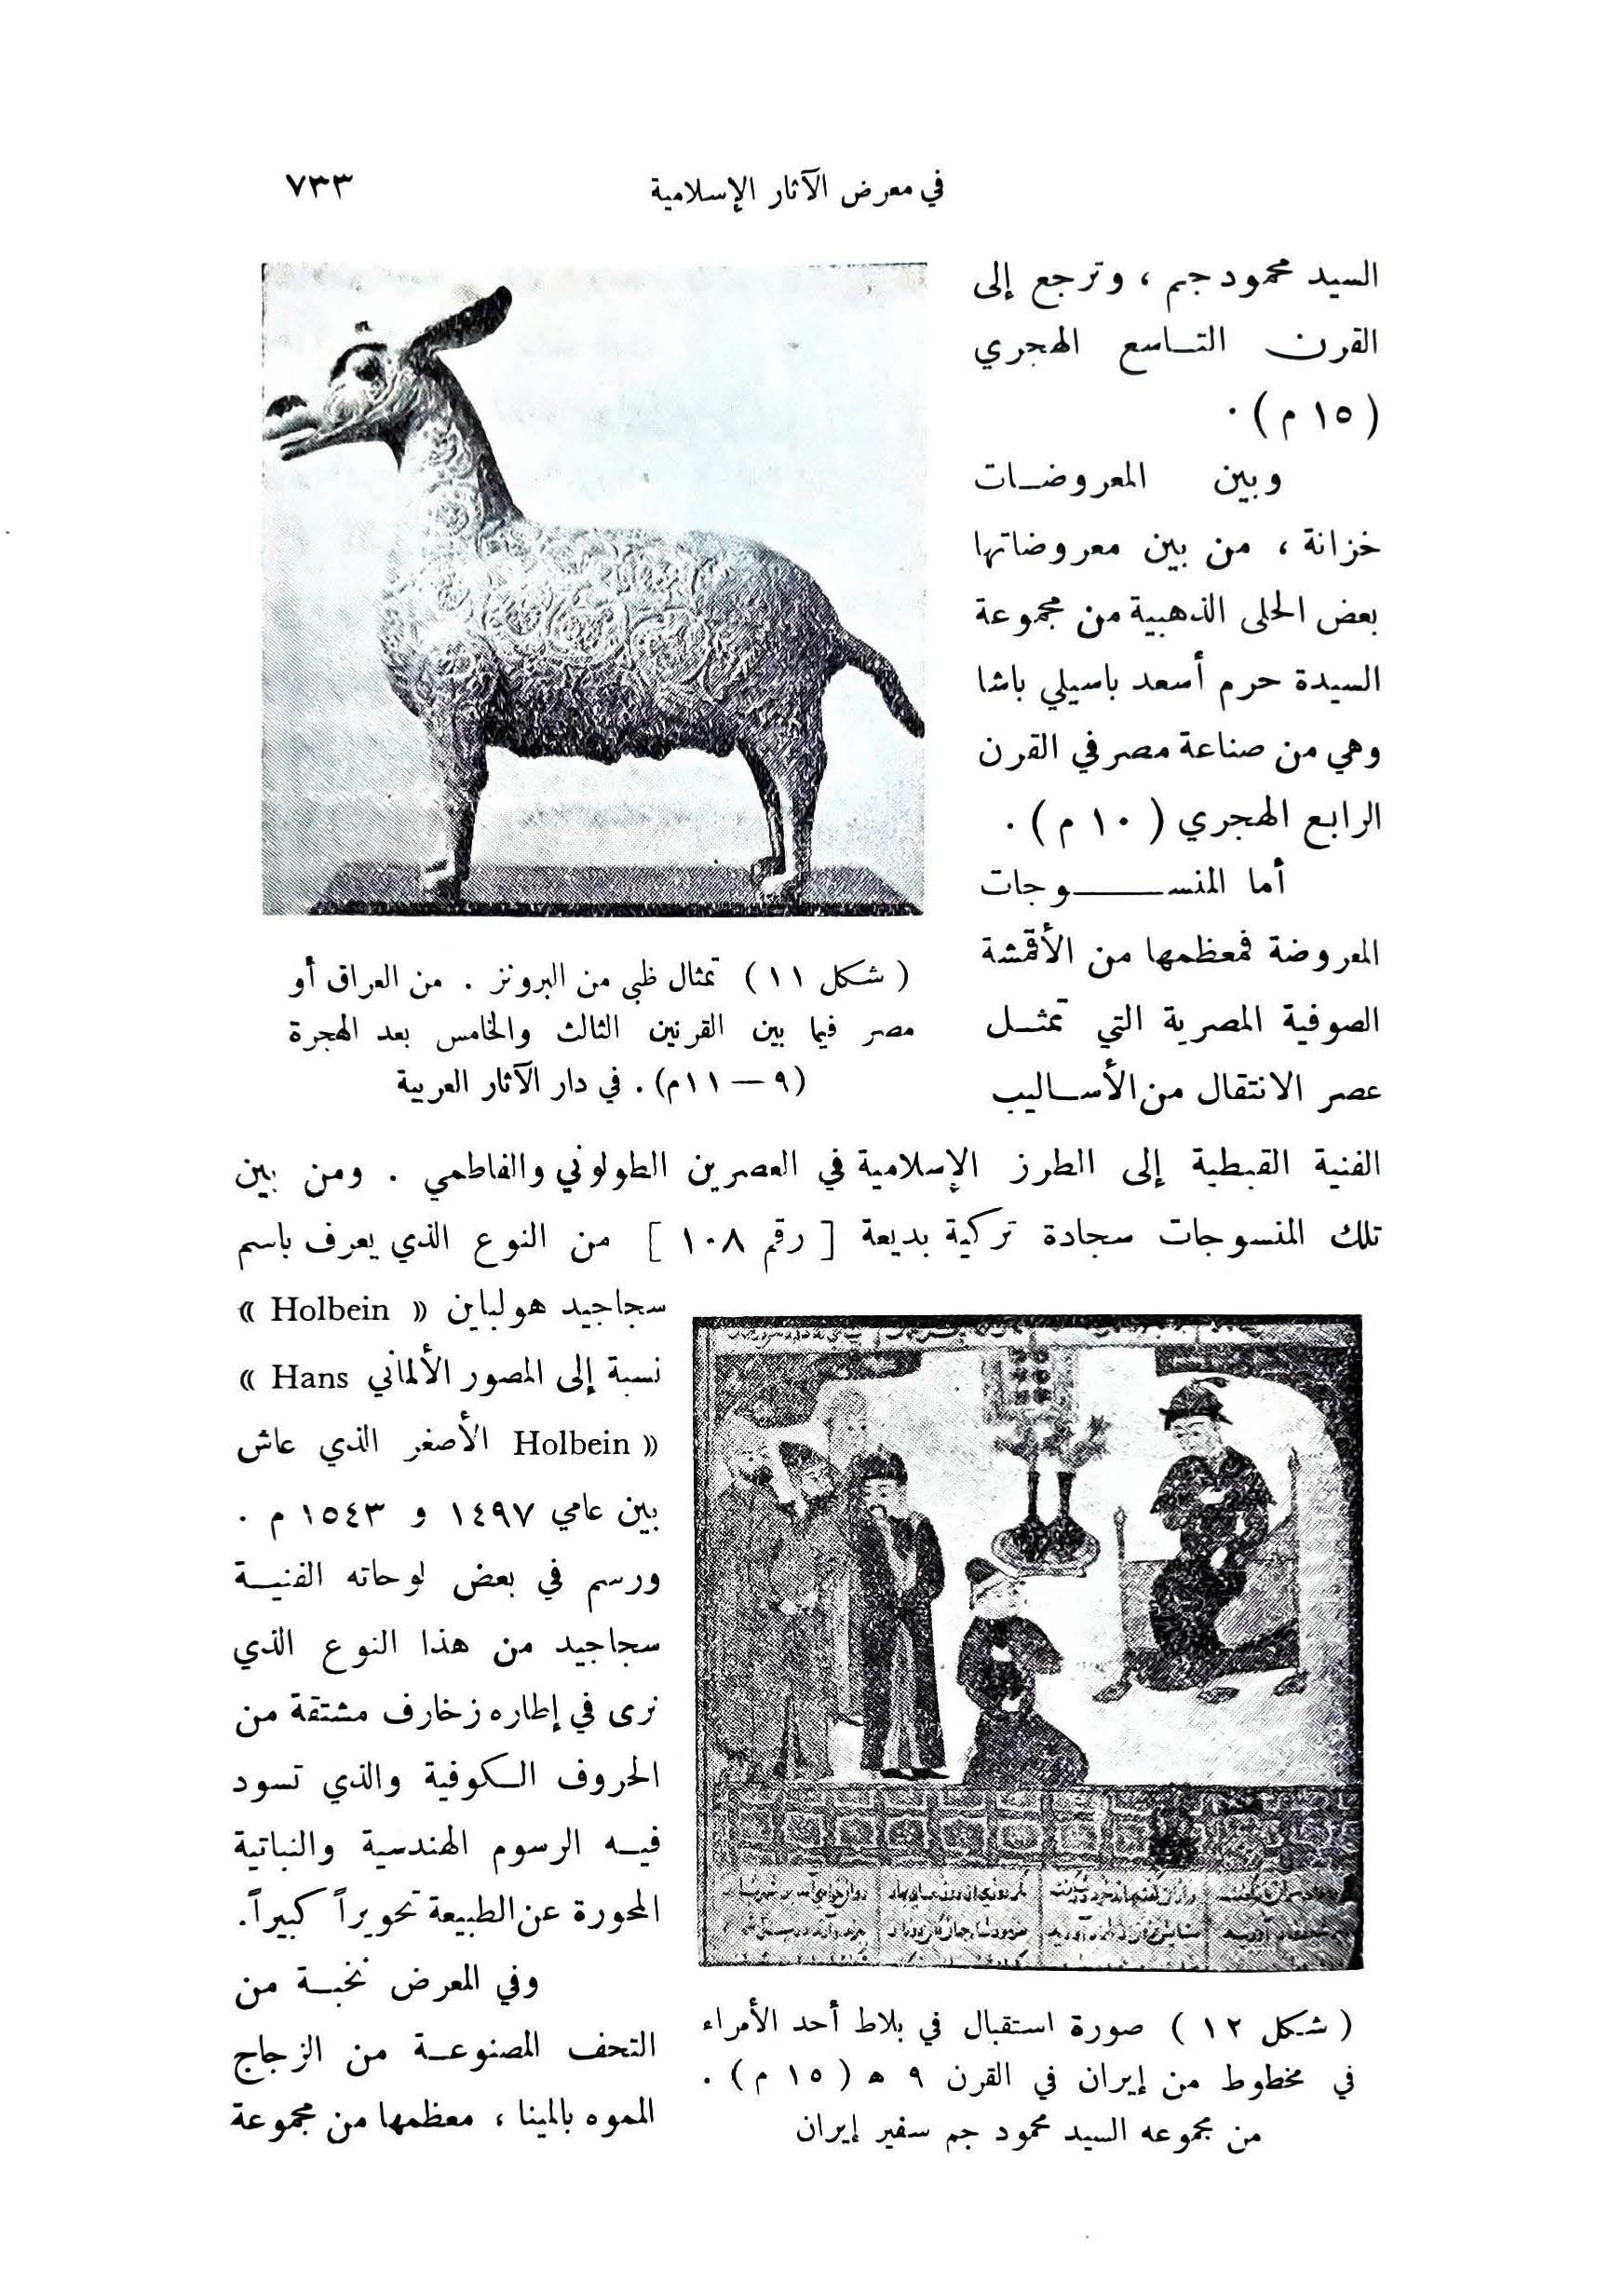 في معرض الآثار الإسلامية ٧٣٣
السيد محمود جم ، وترجع إلى
القرن التاسع الهجري
( ١٥ م ) .
وبين المعروضات
خزانة ، من بين معروضاتها
بعض الحلى الذهبية من مجموعة
السيدة حرم أسعد باسيلي باشا
وهي من صناعة مصر في القرن
الرابع الهجري ( ١٠ م ) .
أما المنسوجات
المعروضة فمعظمها من الأقمشة
الصوفية المصرية التي تمثل
عصر الانتقال من الأساليب
( شكل ١١ ) تمثال ظبي من البرونز . من العراق أو
مصر فيما بين القرنين الثالث والخامس بعد الهجرة
(٩ — ١١م) . في دار الآثار العربية
الفنية القبطية إلى الطرز الإسلامية في العصرين الطولوني والفاطمي . ومن بين
تلك المنسوجات سجادة تركية بديعة [ رقم ١٠٨ ] من النوع الذي يعرف باسم
سجاجيد هولباين « Holbein »
نسبة إلى المصور الألماني Hans »
« Holbein الأصغر الذي عاش
بين عامي ١٤٩٧ و ١٥٤٣ م .
ورسم في بعض لوحاته الفنية
سجاجيد من هذا النوع الذي
نرى في إطاره زخارف مشتقة من
الحروف الكوفية والذي تسود
فيه الرسوم الهندسية والنباتية
المحورة عن الطبيعة تحويراً كبيراً.
وفي المعرض نخبة من
التحف المصنوعة من الزجاج
المموه بالمينا ، معظمها من مجموعة
( شكل ١٢ ) صورة استقبال في بلاط أحد الأمراء
في مخطوط من إيران في القرن ٩ ه ( ١٥ م ) .
من مجموعه السيد محمود جم سفير إيران